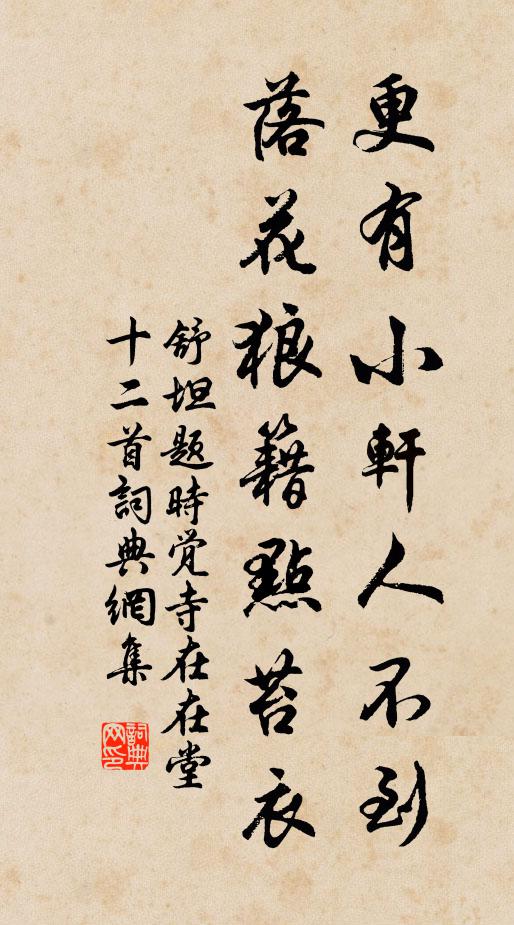 更有小軒人不到
落花狼籍點苔衣
舒坦題時觉寺在在堂
十二首詞典網集
詞典网印